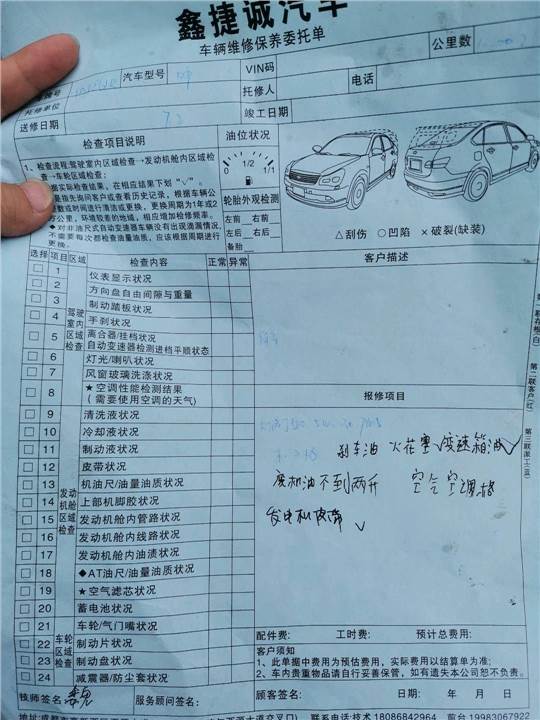 鑫捷诚汽车
车辆维修保养委托单
公里数
汽车型号
VIN码
托修单位
托修人
电话
送修日期 7.2
竣工日期
检查项目说明
油位状况
0 1/2 1/1
1、检查流程:驾驶室内区域检查→发动机舱内区域检查→车轮区域检查;
实际检查结果，在相应结果下划“√”。
是指先询问客户或查看历史记录，根据车辆公
数或时间进行清洁或更换，更换周期为1年或2
万公里，环境较差的地域，相应增加检修频率。
◆对非油尺式自动变速器车辆没有出现滴漏情况，
不需要每次都检查油量油质，应该根据周期进行
更换。
轮胎外观检测
左前 右前
左后 右后
备胎
△刮伤 ○凹陷 ×破裂(缺装)
选择 项目 区域 检查内容 正常 异常
客户描述
驾驶室内区域检查
1 仪表显示状况
2 方向盘自由间隙与重量
3 制动踏板状况
4 手刹状况
5 离合器/挂档状况
自动变速器检测进档平顺状态
6 灯光/喇叭状况
7 风窗玻璃洗涤状况
8 ★空调性能检测结果
(需要使用空调的天气)
报修项目
发动机舱区域检查
9 清洗液状况
10 冷却液状况
11 制动液状况
12 皮带状况
13 机油尺/油量油质状况
14 上部机脚胶状况
15 发动机舱内管路状况
16 发动机舱内线路状况
17 发动机舱内油渍状况
18 ◆AT油尺/油量油质状况
19 ★空气滤芯状况
20 蓄电池状况
刹车油 火花塞√ 变速箱油√
废机油不到两升 空气空调格
发电机皮带 √
车轮区域检查
21 车轮/气门嘴状况
22 制动片状况
23 制动盘状况
24 减震器/防尘套状况
配件费: 工时费: 预计总费用:
客户须知
1、此单据中费用为预估费用，实际费用以结算单为准;
2、车内贵重物品请自行妥善保管，如有遗失本公司恕不负责。
技师签名:
服务顾问签名:
顾客签名:
日期: 年 月 日
第二联客户(红)
第三联派工(蓝)
联系电话:技术18086842964 前台19983067922